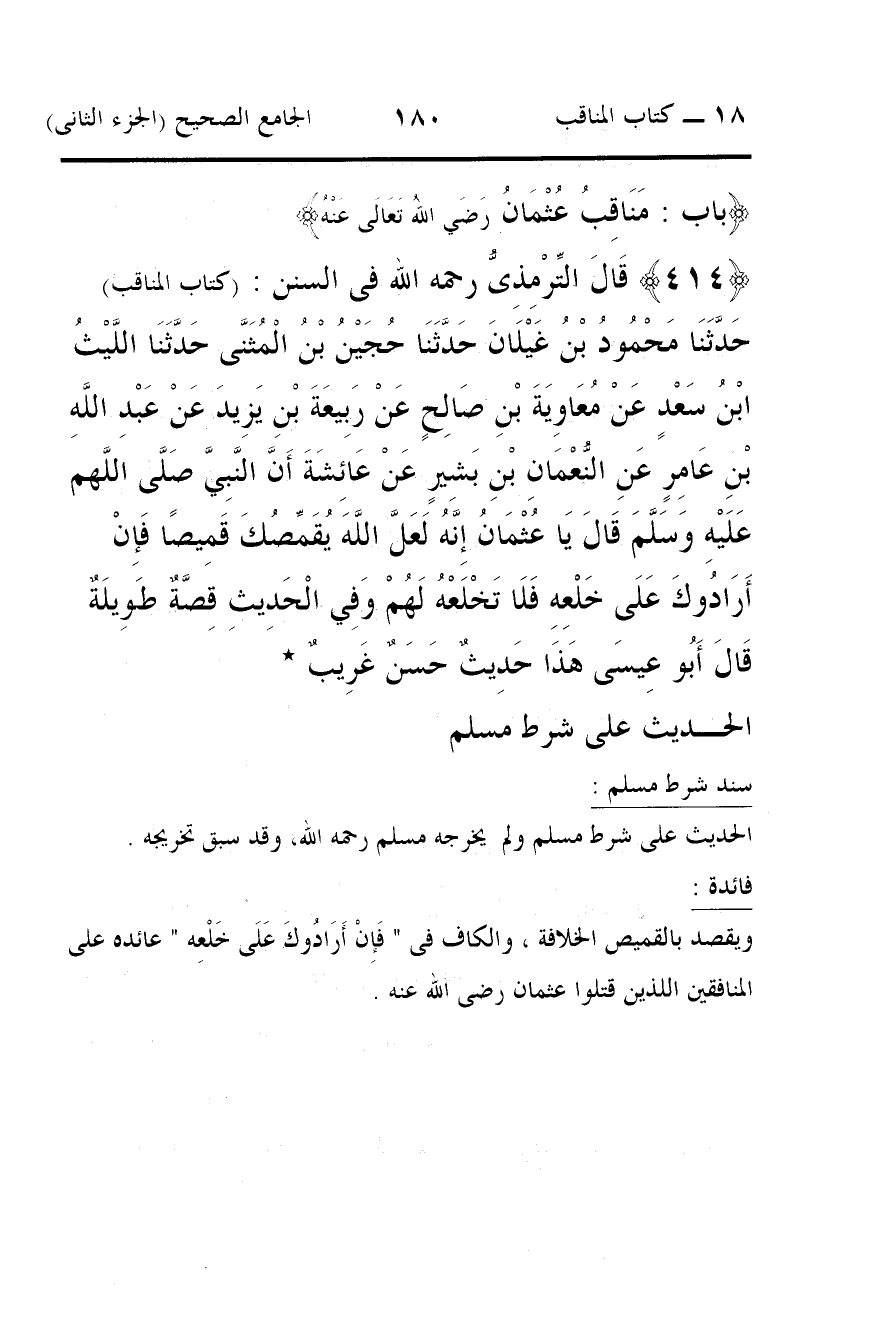 ١٨ ــ كتاب المناقب ١٨٠ الجامع الصحيح (الجزء الثانى)
﴿باب : مَنَاقِبُ عُثْمَانُ رَضَي اللهُ تَعَالَى عَنْهُ﴾
﴿٤١٤﴾ قَالَ التِّرْمِذِىُّ رحمه الله فى السنن : (كتاب المناقب)
حَدَّثَنَا مَحْمُودُ بْنُ غَيْلَانَ حَدَّثَنَا حُجَيْنُ بْنُ الْمُثَنَّى حَدَّثَنَا اللَّيْثُ
ابْنُ سَعْدٍ عَنْ مُعَاوِيَةَ بْنِ صَالِحٍ عَنْ رَبِيعَةَ بْنِ يَزِيدَ عَنْ عَبْدِ اللَّهِ
بْنِ عَامِرٍ عَنِ النُّعْمَانِ بْنِ بَشِيرٍ عَنْ عَائِشَةَ أَنَّ النَّبِيَّ صَلَّى اللَّهم
عَلَيْهِ وَسَلَّمَ قَالَ يَا عُثْمَانُ إِنَّهُ لَعَلَّ اللَّهَ يُقَمِّصُكَ قَمِيصًا فَإِنْ
أَرَادُوكَ عَلَى خَلْعِهِ فَلَا تَخْلَعْهُ لَهُمْ وَفِي الْحَدِيثِ قِصَّةٌ طَوِيلَةٌ
قَالَ أَبُو عِيسَى هَذَا حَدِيثٌ حَسَنٌ غَرِيبٌ *
الحـــديث على شرط مسلم
سند شرط مسلم :
الحديث على شرط مسلم ولم يخرجه مسلم رحمه الله، وقد سبق تخريجه .
فائدة :
ويقصد بالقميص الخلافة ، والكاف فى " فَإِنْ أَرَادُوكَ عَلَى خَلْعِه " عائده على
المنافقين اللذين قتلوا عثمان رضى الله عنه .